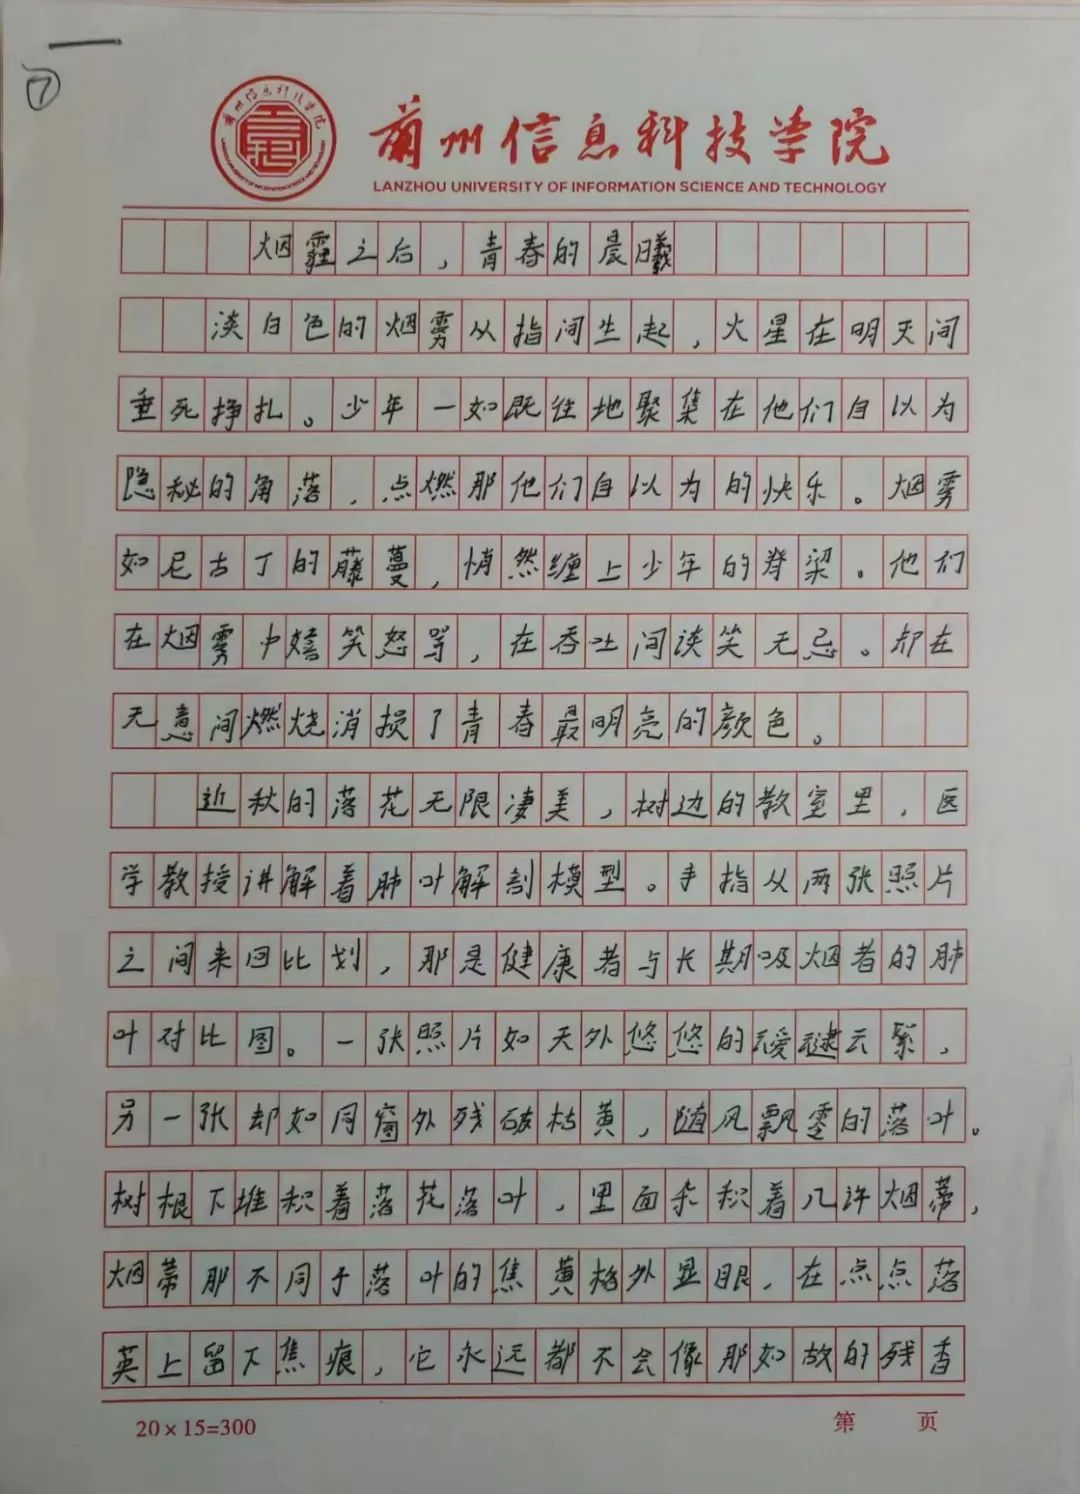 ⑦
兰州信息科技学院
LANZHOU UNIVERSITY OF INFORMATION SCIENCE AND TECHNOLOGY
烟霾之后，青春的晨曦
淡白色的烟雾从指间生起，火星在明灭间
垂死挣扎。少年一如既往地聚集在他们自以为
隐秘的角落，点燃那他们自以为的快乐。烟雾
如尼古丁的藤蔓，悄然缠上少年的脊梁。他们
在烟雾中嬉笑怒骂，在吞吐间谈笑无忌。却在
无意间燃烧消损了青春最明亮的颜色。
近秋的落花无限凄美，树边的教室里，医
学教授讲解着肺叶解剖模型。手指从两张照片
之间来回比划，那是健康者与长期吸烟者的肺
叶对比图。一张照片如天外悠悠的叆叇云絮，
另一张却如同窗外残破枯黄，随风飘零的落叶。
树根下堆积着落花落叶，里面杂积着几许烟蒂，
烟蒂那不同于落叶的焦黄格外显眼，在点点落
英上留下焦痕，它永远都不会像那如故的残香
20×15=300
第 页